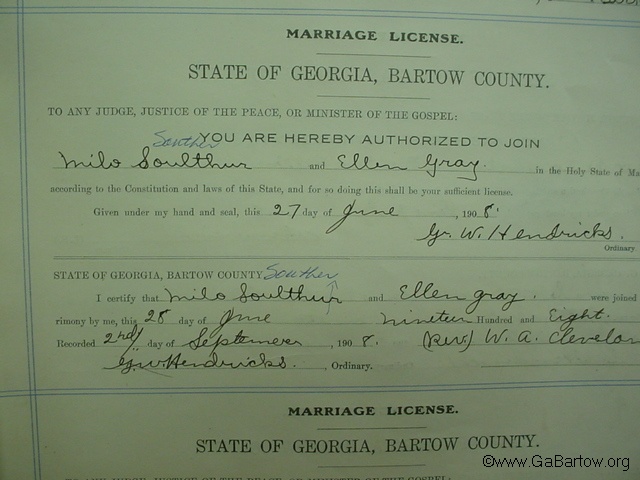 MARRIAGE LICENSE.
STATE OF GEORGIA, BARTOW COUNTY.
TO ANY JUDGE, JUSTICE OF THE PEACE, OR MINISTER OF THE GOSPEL:
Souther YOU ARE HEREBY AUTHORIZED TO JOIN
Milo Soulthur and Ellen Gray. in the Holy State of Ma
according to the Constitution and laws of this State, and for so doing this shall be your sufficient license.
Given under my hand and seal, this 27 day of June, 1908.
G. W. Hendricks.
Ordinary.
STATE OF GEORGIA, BARTOW COUNTY Souther
I certify that Milo Soulthur and Ellen Gray. were joined
rimony by me, this 28 day of June nineteen Hundred and Eight.
Recorded 2nd day of September, 1908. (Rev.) W. A. Clevelan
G. W. Hendricks. , Ordinary.
MARRIAGE LICENSE.
STATE OF GEORGIA, BARTOW COUNTY.
©www.GaBartow.org